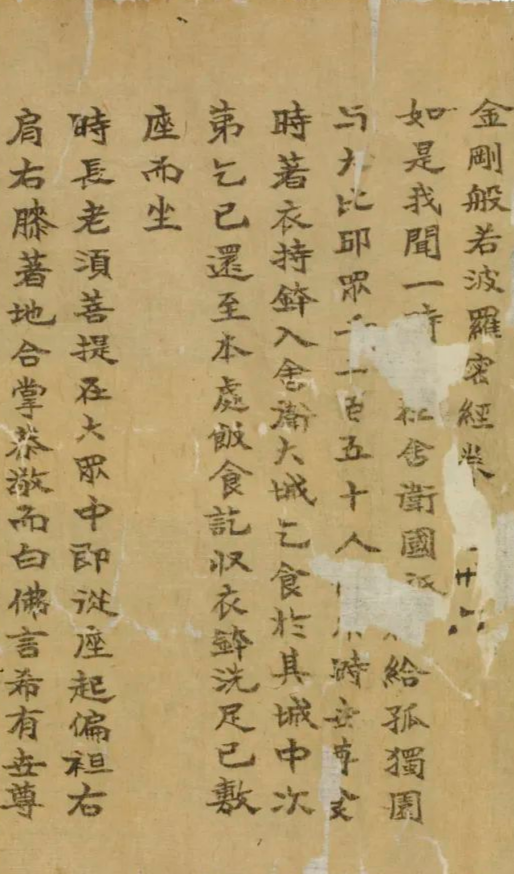 金剛般若波羅蜜經卷
如是我聞一時 在舍衛國祇 給孤獨園
与大比丘眾千二百五十人 尒時世尊食
時著衣持鉢入舍衛大城乞食於其城中次
弟乞已還至本處飯食訖収衣鉢洗足已敷
座而坐
時長老須菩提在大眾中即從座起偏袒右
肩右膝著地合掌恭敬而白佛言希有世尊